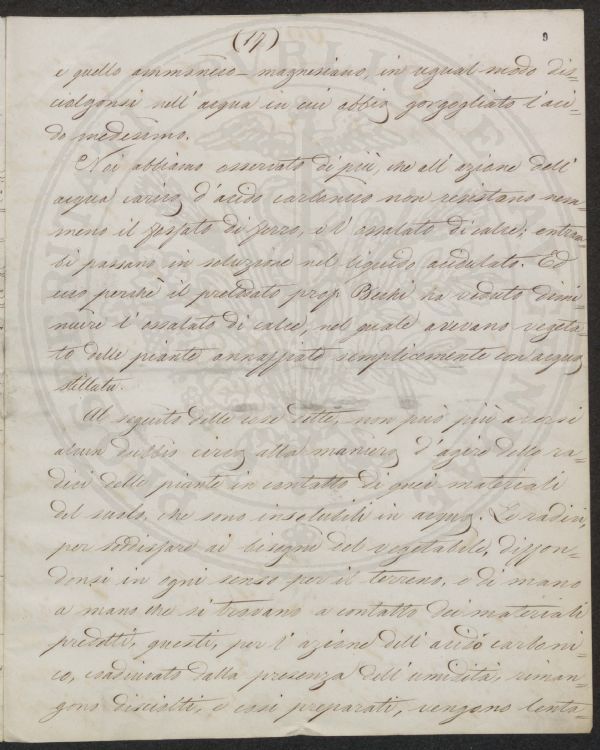 (17)
9
e quello ammonico-magnesiano, in ugual modo dis=
ciolgonsi nell'acqua in cui abbia gorgogliato l'aci=
do medesimo.
Noi abbiamo osservato di più, che all'azione dell'
acqua carica d'acido carbonico non resistono nem=
meno il fosfato di ferro, e l'ossalato di calce; entram=
bi passano in soluzione nel liquido acidulato. Ed
ecco perchè il prelodato prof. Bechi ha veduto dimi=
nuire l'ossalato di calce, nel quale avevano vegeta=
to delle piante annaffiate semplicemente con acqua
stillata.
Al seguito delle cose dette, non può più aversi
alcun dubbio circa alla maniera d'agire delle ra=
dici delle piante in contatto di quei materiali
del suolo, che sono insolubili in acqua. Le radici,
per soddisfare ai bisogni del vegetabile, diffon=
donsi in ogni senso per il terreno, e di mano
a mano che si trovano a contatto dei materiali
predetti, questi, per l'azione dell'acido carboni=
co, coadiuvato dalla presenza dell'umidità, riman=
gono disciolti, e così preparati, vengono lenta=